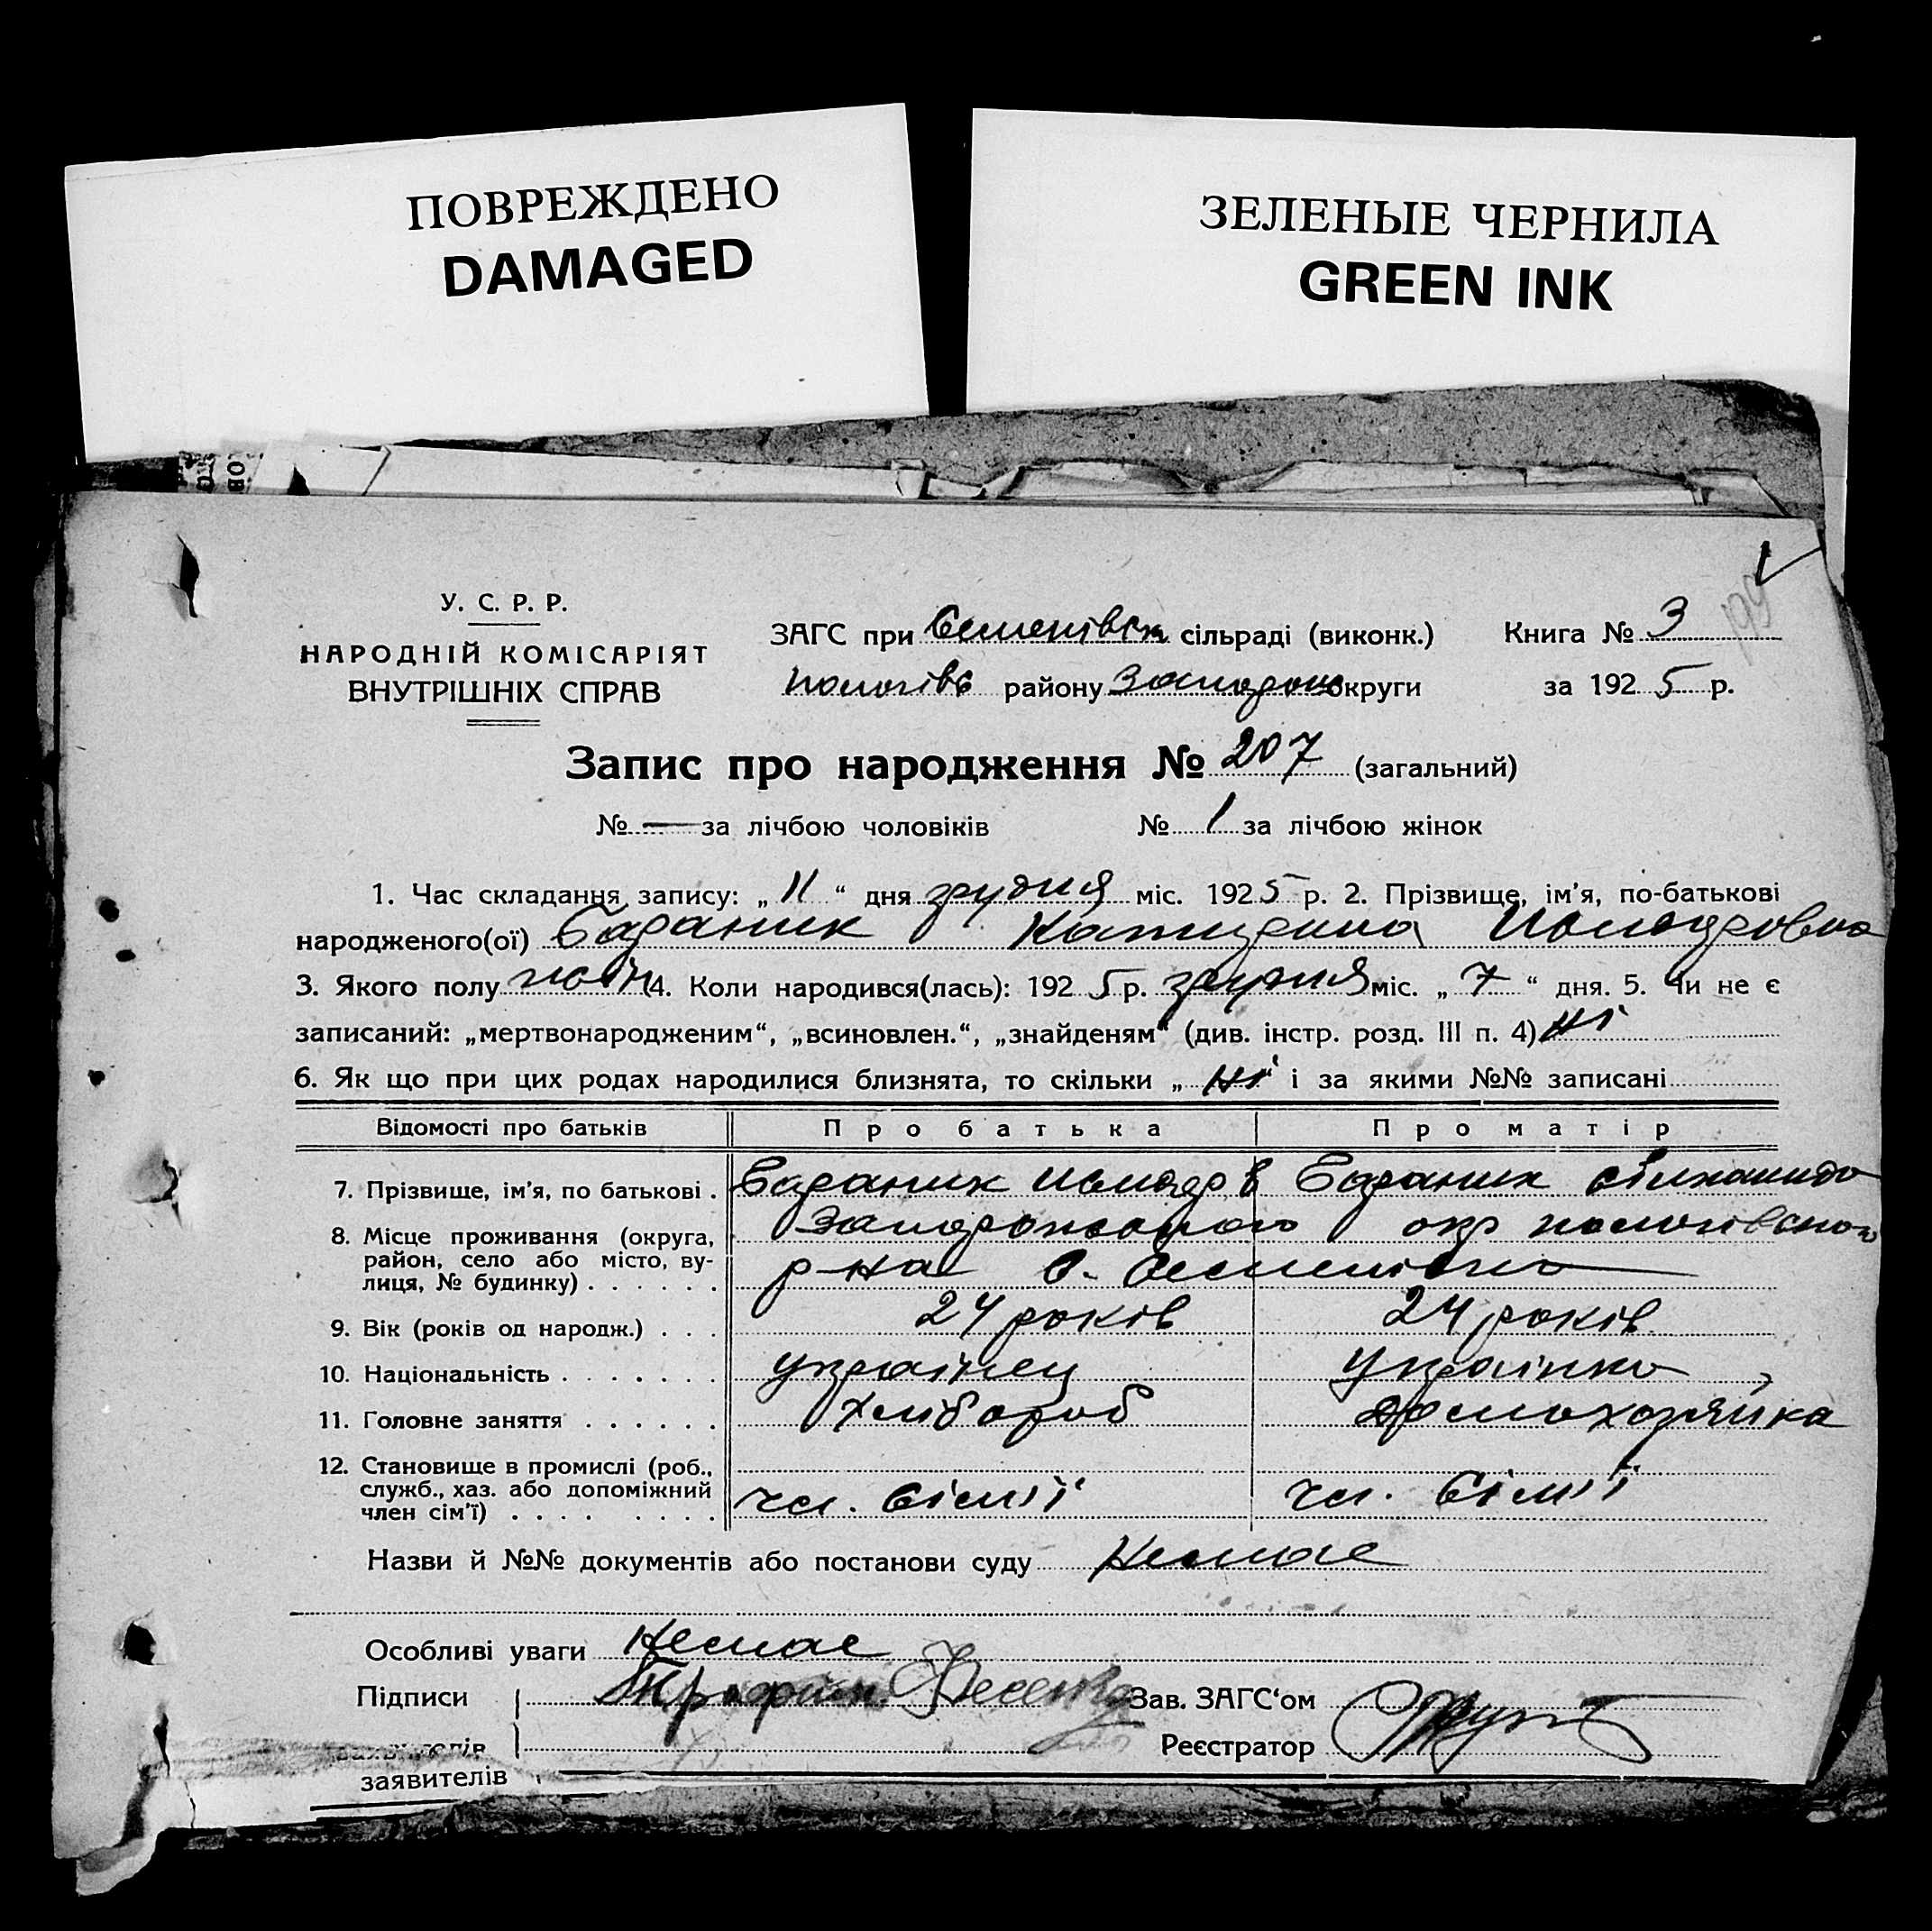 ПОВРЕЖДЕНО
DAMAGED
ЗЕЛЕНЫЕ ЧЕРНИЛА
GREEN INK
У. С. Р. Р.
НАРОДНІЙ КОМІСАРІЯТ
ВНУТРІШНІХ СПРАВ
ЗАГС при Семенівск сільраді (виконк.)
пологівс району Запорош округи
Книга № 3
за 192 5 р.
Запис про народження № 207 (загальний)
№ — за лічбою чоловіків № 1 за лічбою жінок
1. Час складання запису: „ 11 “ дня грудня міс. 192 5 р. 2. Прізвище, ім'я, по-батькові
народженого(ої) Бараник Катирина
3. Якого полу 4. Коли народився(лась): 192 5 р. грудня міс. „ 7 “ дня. 5. Чи не є
записаний: „мертвонародженим“, „всиновлен.“, „знайденям“ (див. інстр. розд. III п. 4) ні
6. Як що при цих родах народилися близнята, то скільки „ ні “ і за якими №№ записані
Відомості про батьків Про батька Про матір
7. Прізвище, ім'я, по батькові . Бараник Бараник
8. Місце проживання (округа, район, село або місто, вулиця, № будинку) . . . . . . окр пологівского
р-на с. Семенівка
9. Вік (років од народж.) . . . 24 років 24 років
10. Національність . . . . . . . українец українка
11. Головне заняття . . . . . . хлібороб домохозяйка
12. Становище в промислі (роб., служб., хаз. або допоміжний член сім'ї) . . . . . . . . чл. сімії чл. сімії
Назви й №№ документів або постанови суду Немае
Особливі уваги Немае
Підписи Трофим Фесенко Зав. ЗАГС'ом
Реєстратор
заявителів